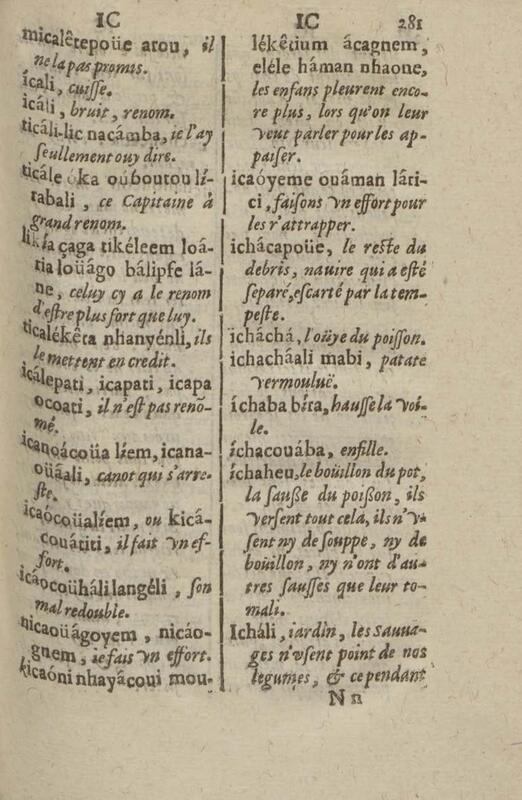 IC
micalêtepoüe atou, il
ne la pas promis.
icali, cuisse.
icáli, bruit, renom.
ticáli-lic nacámba, ie l'ay
seullement ouy dire.
ticále óka ouboutou lí-
tabali, ce Capitaine à
grand renom.
likía çaga tikéleem loá-
tia loüágo bálipfe lá-
ne, celuy cy a le renom
d'estre plus fort que luy.
ticalékêta nhanyénli, ils
le mettent en credit.
icálepati, icapati, icapa
ocoati, il n'est pas renō-
mé.
icanoácoüa líem, icana-
oüáali, canot qui s'arre-
ste.
icaócoüalíem, ou kicâ-
couátiti, il fait vn ef-
fort.
icáocoüháli langéli, son
mal redouble.
nicaoüágoyem, nicáo-
gnem, ie fais vn effort.
kicaóni nhayácoui mou-
IC 281
lékêtium ácagnem,
eléle háman nhaone,
les enfans pleurent enco-
re plus, lors qu'on leur
veut parler pour les ap-
paiser.
icaóyeme ouáman láti-
ci, faisons vn effort pour
les r'attrapper.
ichácapoüe, le reste du
debris, nauire qui a esté
separé, escarté par la tem-
peste.
icháchá, l'oüye du poisson.
ichacháali mabi, patate
vermouluë.
íchaba bíra, hausse la voi-
le.
íchacouába, enfille.
íchaheu, le boüillon du pot,
la sauße du poißon, ils
versent tout cela, ils n'v-
sent ny de souppe, ny de
boüillon, ny n'ont d'au-
tres sausses que leur to-
mali.
Icháli, iardin, les Sauua-
ges n'vsent point de nos
legumes, & cependant
N n